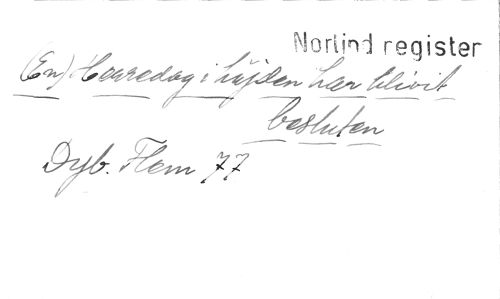 Norlind register
(En) Herredag i höjden har blivit
besluten
Dyb. Flem 77